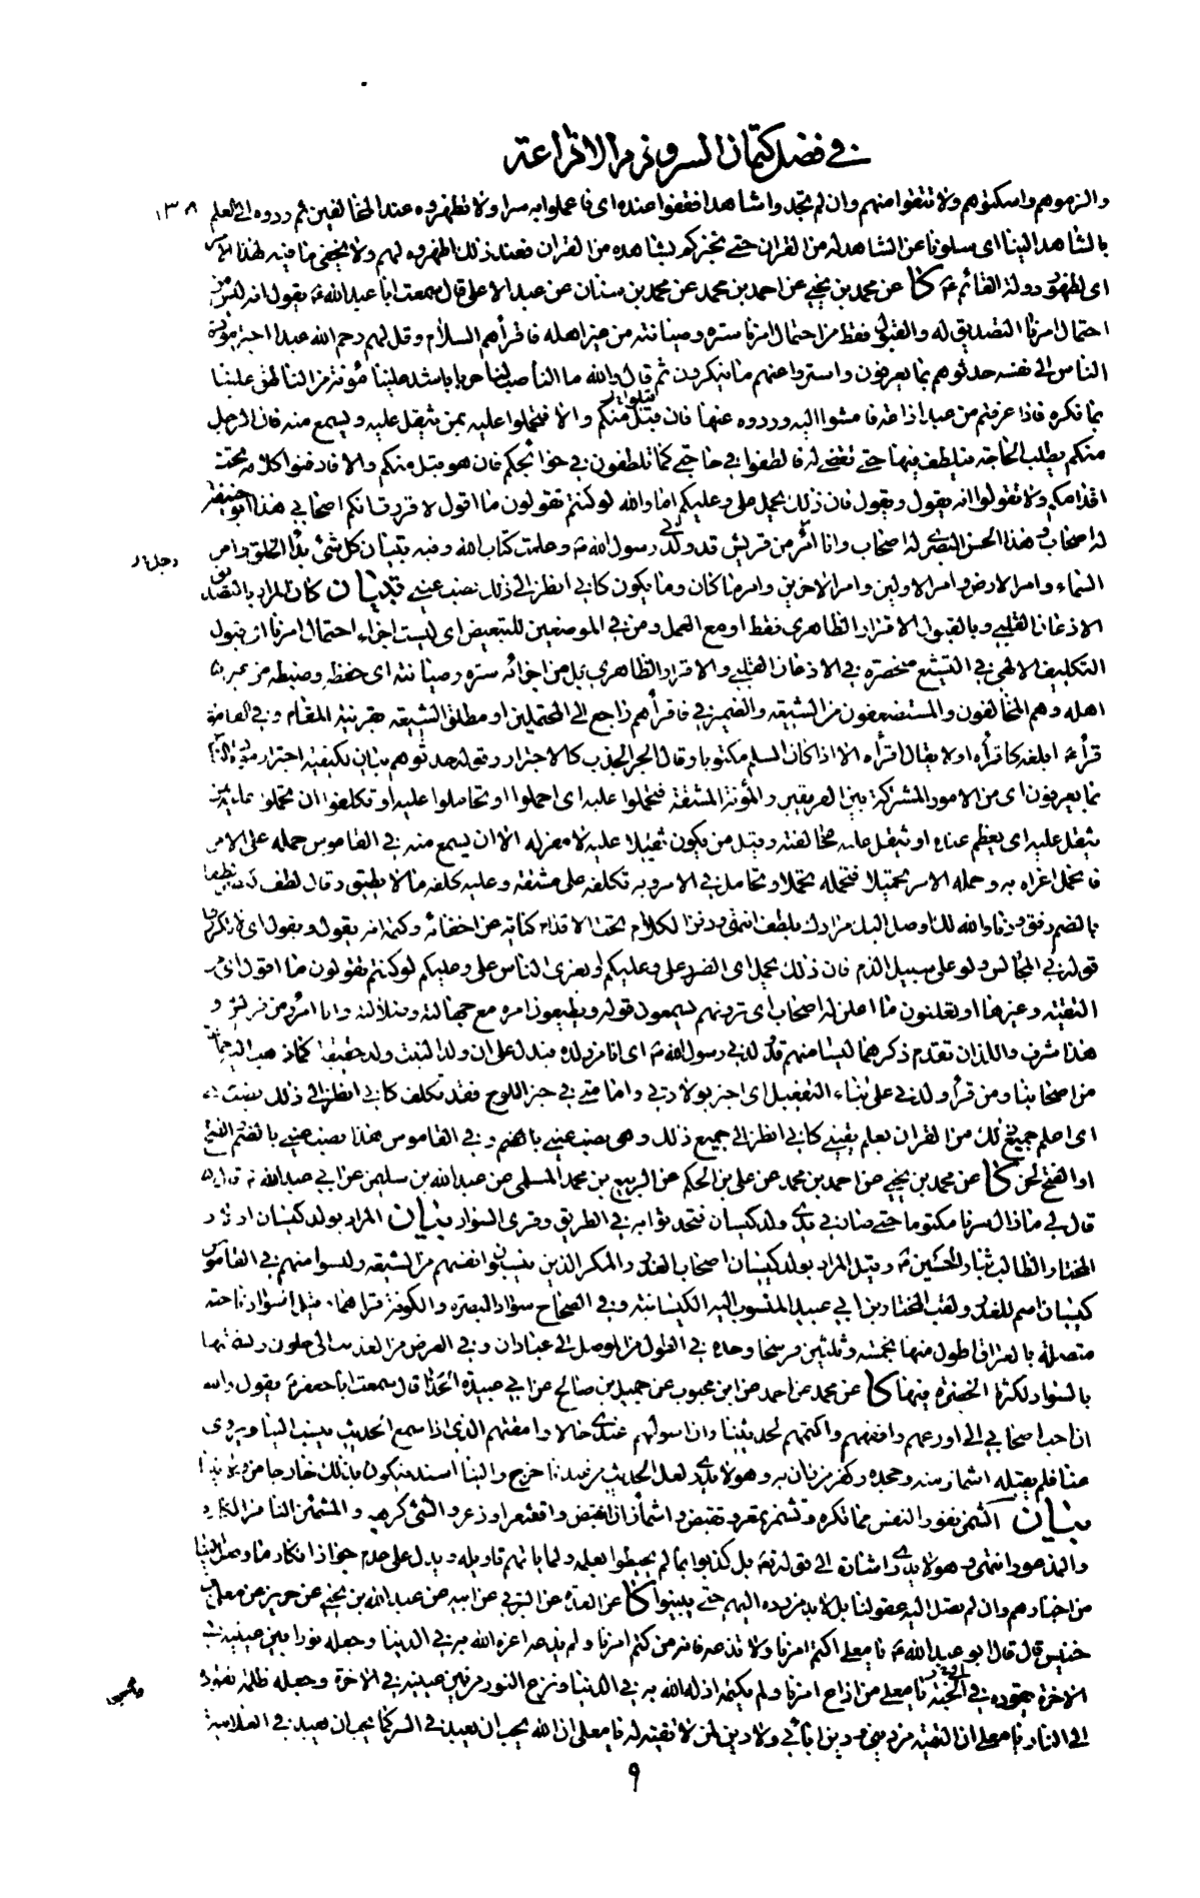 في فضل كتمان السر و ذم الاذاعة
والزموهم واسكتوهم ولا تتقوا منهم وان لم تجدوا شاهدا فقفوا عنده اى فاعملوا به سرا ولا تظهروه عند المخالفين ثم ردوه الى العلم ١٣٨
بالشاهد الينا اى سلونا عن الشاهد له من القران حتى نخبركم بشاهده من القران فعند ذلك اظهروه لهم ولا يخفى ما فيه لهذا
اى لظهور دولة القائم ع كا عن محمد بن يحيى عن احمد بن محمد عن محمد بن سنان عن عبد الاعلى قال سمعت ابا عبد الله ع يقول انه ليس من
احتمال امرنا التصديق له والقبول فقط من احتمال امرنا ستره وصيانته من غير اهله فاقرأهم السلام وقل لهم رحم الله عبدا اجتر مودة
الناس الى نفسه حدثوهم بما يعرفون واستروا عنهم ما ينكرون ثم قال والله ما الناصب لنا حربا باشد علينا مؤنة من الناطق علينا
بما نكره فاذا عرفتم من عبد اذاعة فامشوا اليه وردوه عنها فان قبل منكم والا فتحملوا عليه بمن يثقل عليه ويسمع منه فان الرجل
منكم يطلب الحاجة فيلطف فيها حتى تقضى له فالطفوا في حاجتى كما تلطفون في حوائجكم فان هو قبل منكم والا فادفنوا كلامه تحت
اقدامكم ولا تقولوا انه يقول ويقول فان ذلك يحمل على وعليكم اما والله لو كنتم تقولون ما اقول لاقررت انكم اصحابي هذا ابو حنيفة
له اصحاب وهذا الحسن البصرى له اصحاب وانا امرؤ من قريش قد ولدنى رسول الله ص وعلمت كتاب الله وفيه تبيان كل شئ بدأ الخلق وامر
السماء وامر الارض وامر الاولين وامر الاخرين وامر ما كان وما يكون كانى انظر الى ذلك نصب عينى بيان كان المراد بالتصديق
الاذعان القلبى وبالقبول الاقرار الظاهرى فقط او مع العمل ومن في الموضعين للتبعيض اى ليست اجزاء احتمال امرنا اى قبول
التكليف الالهى في التشيع منحصرة في الاذعان القلبى والاقرار الظاهرى بل من اجزائه ستره وصيانته اى حفظه وضبطه من غير
اهله وهم المخالفون والمستضعفون من الشيعة والضمير في فاقرأهم راجع الى المحتملين او مطلق الشيعة بقرينة المقام وفي القاموس
قرأ ع ابلغه كاقرأه او لا يقال اقرأه الا اذا كان السلم مكتوبا وقال الجر الجذب كالاجترار وقوله حدثوهم بيان لكيفية اجترار مودة
بما يعرفون اى من الامور المشتركة بين الفريقين والمؤنة المشقة فتحملوا عليه اى احملوا او تحاملوا عليه او تكلفوا ان تحملوا عليه من
يثقل عليه اى يعظم عنده او يثقل عليه مخالفته وقيل من يكون ثقيلا عليه لا مفر له الا ان يسمع منه في القاموس حمله على الامر
فانحمل اغراه به وحمله الامر تحميلا فتحمله تحملا وتحامل في الامر وبه تكلفه على مشقة وعليه كلفه ما لا يطيق وقال لطف
بالضم رفق ودنا والله لك اوصل اليك مرادك بلطف انتهى ودفن الكلام تحت الاقدام كناية عن اخفائه وكتمه انه يقول ويقول اى لا تكرروا
قوله في المجالس ولو على سبيل الذم فان ذلك يحمل اى الضرر على وعليكم او يغرى الناس على وعليكم لو كنتم تقولون ما اقول اى
التقية وغيرها او تعلنون ما اعلن له اصحاب اى ترونهم يسمعون قوله ويطيعون امره مع جهالته وضلالته وانا امرؤ من قريش و
هذا شرف واللذان تقدم ذكرهما ليسا منهم قد ولدنى رسول الله ص اى انا من ولده فيدل على ان ولد البنت ولد حقيقة كما ذهب اليه جماعة
من اصحابنا ومن قرأ ولدنى على بناء التفعيل اى اخبر بولادتى وامامتى في خبر اللوح فقد تكلف كانى انظر الى ذلك نصب
اى اعلم جميع ذلك من القران بعلم يقينى كانى انظر الى جميع ذلك وهى نصب عينى بالضم وفي القاموس هذا نصب عينى بالضم والفتح
او الفتح لحن كا عن محمد بن يحيى عن احمد بن محمد عن على بن الحكم عن الربيع بن محمد المسلمى عن عبد الله بن سليمن عن ابي عبد الله ع قال
قال لى ما زال سرنا مكتوما حتى صار في يدى ولد كيسان فتحدثوا به في الطريق وقرى السواد بيان المراد بولد كيسان اولاد
المختار الطالب بثار الحسين ع وقيل المراد بولد كيسان اصحاب الغدر والمكر الذين ينسبون انفسهم من الشيعة وليسوا منهم في القاموس
كيسان اسم للغدر ولقب المختار بن ابي عبيد المنسوب اليه الكيسانية وفي الصحاح سواد البصرة والكوفة قراهما
متصلة بالعراق اطول منها بخمسة وثلثين فرسخا وحده في الطول من الموصل الى عبادان وفي العرض من العذيب الى حلوان وتسميتها
بالسواد لكثرة الخضرة فيها كا عن محمد عن احمد عن ابن محبوب عن جميل بن صالح عن ابي عبيدة الحذاء قال سمعت ابا جعفر ع يقول والله
ان احب اصحابي الى اورعهم وافقههم واكتمهم لحديثنا وان اسوأهم عندى حالا وامقتهم الذى اذا سمع الحديث ينسب الينا ويروى
عنا فلم يقبله اشمأز منه وجحده وكفر من دان به وهو لا يدرى لعل الحديث من عندنا خرج والينا اسند فيكون بذلك خارجا من ولايتنا
بيان الشمز نفور النفس مما تكره وتشمز تمعر وتقبض واشمأز انقبض واقشعر او ذعر والشئ كرهه والمشمئز النافر الكاره
والمذعور انتهى وهو لا يدرى اشارة الى قوله تع بل كذبوا بما لم يحيطوا بعلمه ولما ياتهم تاويله ويدل على عدم جواز انكار ما وصل الينا
من اخبارهم وان لم تصل اليه عقولنا بل لا بد من رده اليهم حتى يبينوا كا عن العدة عن البرقى عن ابيه عن عبد الله بن يحيى عن حريز عن معلى بن
خنيس قال قال ابو عبد الله ع يا معلى اكتم امرنا ولا تذعه فانه من كتم امرنا ولم يذعه اعزه الله به في الدنيا وجعله نورا بين عينيه في
الاخرة يقوده الى الجنة يا معلى من اذاع امرنا ولم يكتمه اذله الله به في الدنيا ونزع النور من بين عينيه في الاخرة وجعله ظلمة تقوده
الى النار يا معلى ان التقية من دينى ودين ابائى ولا دين لمن لا تقية له يا معلى ان الله يحب ان يعبد في السر كما يحب ان يعبد في العلانية
٩